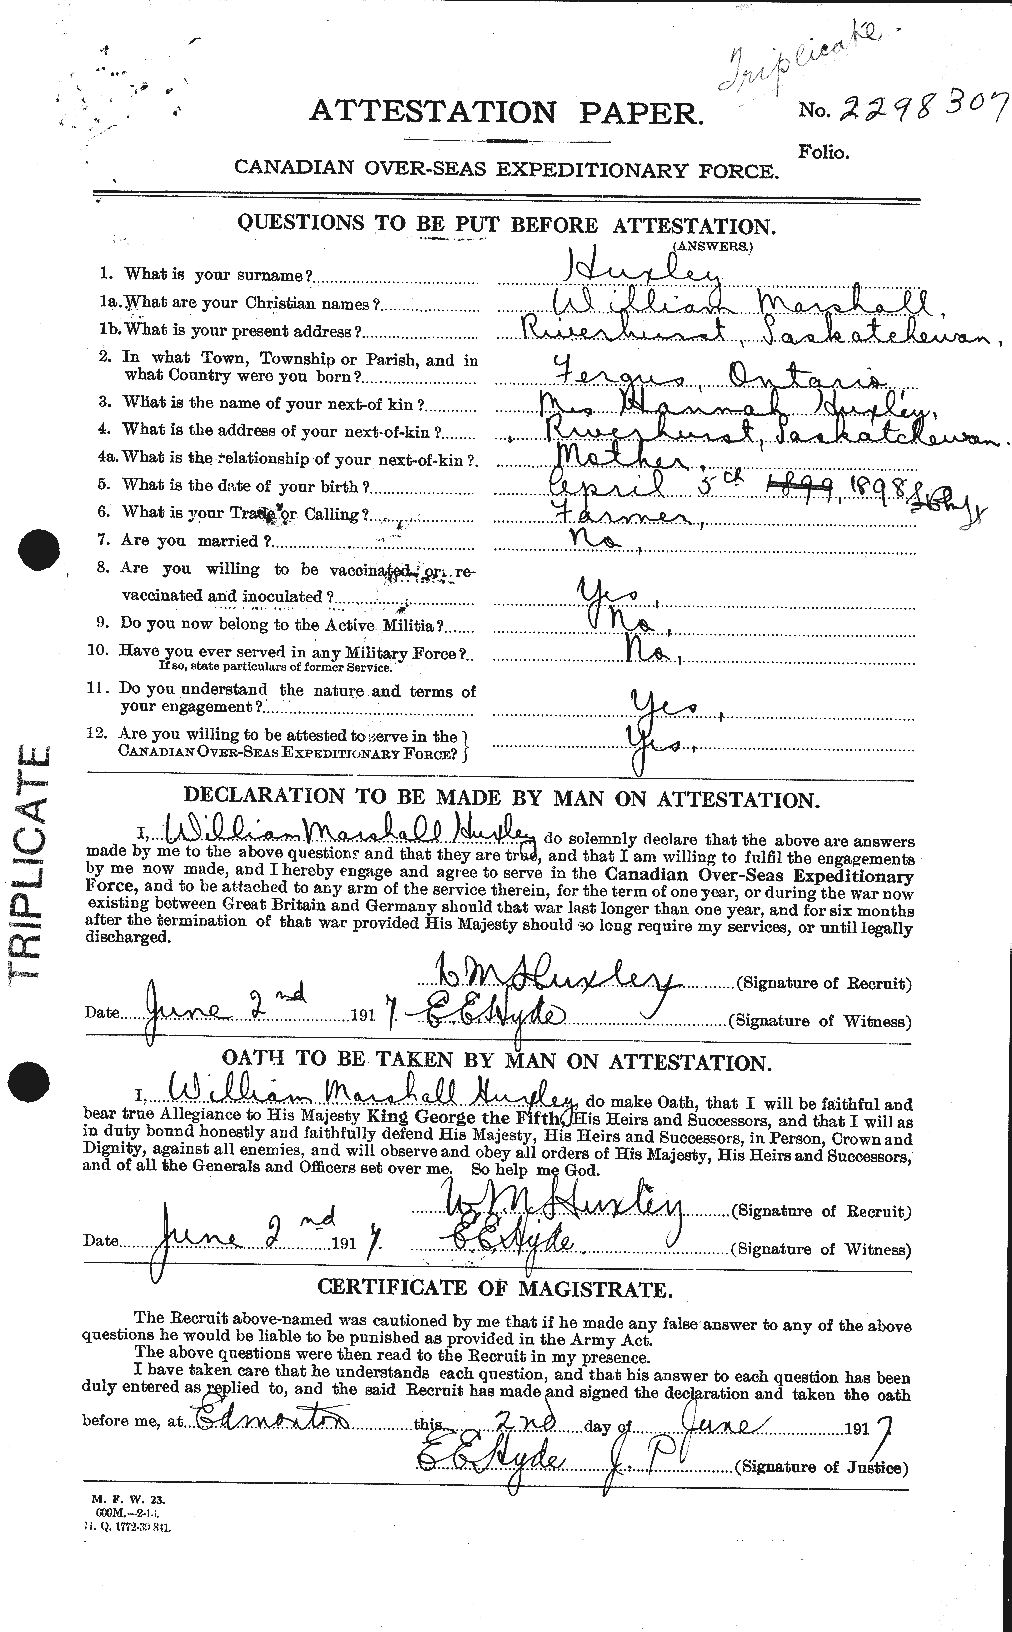 Triplicate.
ATTESTATION PAPER.
No. 2298307
Folio.
CANADIAN OVER-SEAS EXPEDITIONARY FORCE.
QUESTIONS TO BE PUT BEFORE ATTESTATION.
(ANSWERS.)
1. What is your surname? Huxley
1a. What are your Christian names? William Marshall,
1b. What is your present address? Riverhurst, Saskatchewan,
2. In what Town, Township or Parish, and in
what Country were you born? Fergus, Ontario,
3. What is the name of your next-of kin? Mrs Hannah Huxley,
4. What is the address of your next-of-kin? Riverhurst, Saskatchewan.
4a. What is the relationship of your next-of-kin? Mother,
5. What is the date of your birth? April 5th 1899, 1898
6. What is your Trade or Calling? Farmer,
7. Are you married? No,
8. Are you willing to be vaccinated or re-
vaccinated and inoculated? Yes,
9. Do you now belong to the Active Militia? No,
10. Have you ever served in any Military Force? No,
If so, state particulars of former Service.
11. Do you understand the nature and terms of
your engagement? Yes,
12. Are you willing to be attested to serve in the
CANADIAN OVER-SEAS EXPEDITIONARY FORCE? } Yes,
DECLARATION TO BE MADE BY MAN ON ATTESTATION.
I, William Marshall Huxley do solemnly declare that the above are answers
made by me to the above questions and that they are true, and that I am willing to fulfil the engagements
by me now made, and I hereby engage and agree to serve in the Canadian Over-Seas Expeditionary
Force, and to be attached to any arm of the service therein, for the term of one year, or during the war now
existing between Great Britain and Germany should that war last longer than one year, and for six months
after the termination of that war provided His Majesty should so long require my services, or until legally
discharged.
W M Huxley (Signature of Recruit)
Date June 2nd 1917. E E Hyde (Signature of Witness)
OATH TO BE TAKEN BY MAN ON ATTESTATION.
I, William Marshall Huxley do make Oath, that I will be faithful and
bear true Allegiance to His Majesty King George the Fifth, His Heirs and Successors, and that I will as
in duty bound honestly and faithfully defend His Majesty, His Heirs and Successors, in Person, Crown and
Dignity, against all enemies, and will observe and obey all orders of His Majesty, His Heirs and Successors,
and of all the Generals and Officers set over me. So help me God.
W M Huxley (Signature of Recruit)
Date June 2nd 1917. E E Hyde (Signature of Witness)
CERTIFICATE OF MAGISTRATE.
The Recruit above-named was cautioned by me that if he made any false answer to any of the above
questions he would be liable to be punished as provided in the Army Act.
The above questions were then read to the Recruit in my presence.
I have taken care that he understands each question, and that his answer to each question has been
duly entered as replied to, and the said Recruit has made and signed the declaration and taken the oath
before me, at Edmonton this 2nd day of June 1917
E E Hyde J. P (Signature of Justice)
M. F. W. 23.
600M.
H. Q. 1772-39-841.
TRIPLICATE